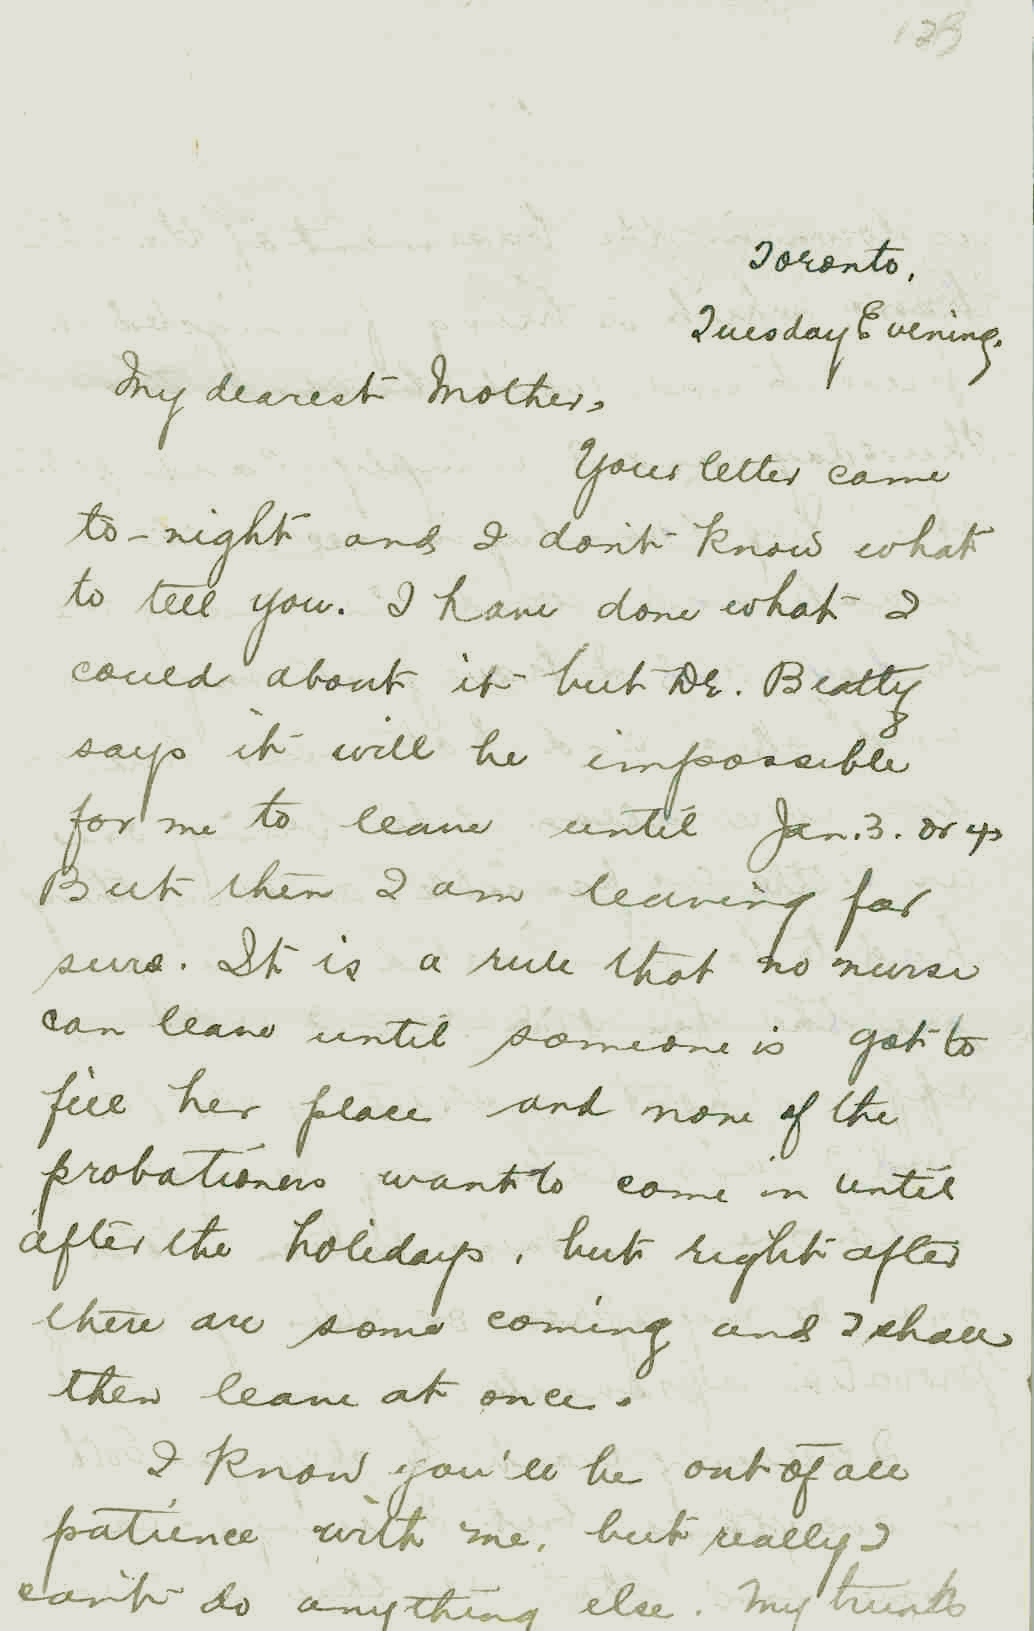 123
Toronto,
Tuesday Evening.
My dearest Mother,
Your letter came
to-night and I don't know what
to tell you. I have done what I
could about it but Dr. Beatty
says it will be impossible
for me to leave until Jan. 3. or 4.
But then I am leaving for
sure. It is a rule that no nurse
can leave until someone is got to
fill her place and none of the
probationers want to come in until
after the holidays, but right after
there are some coming and I shall
then leave at once.
I know you'll be out of all
patience with me, but really I
can't do anything else. My trunk